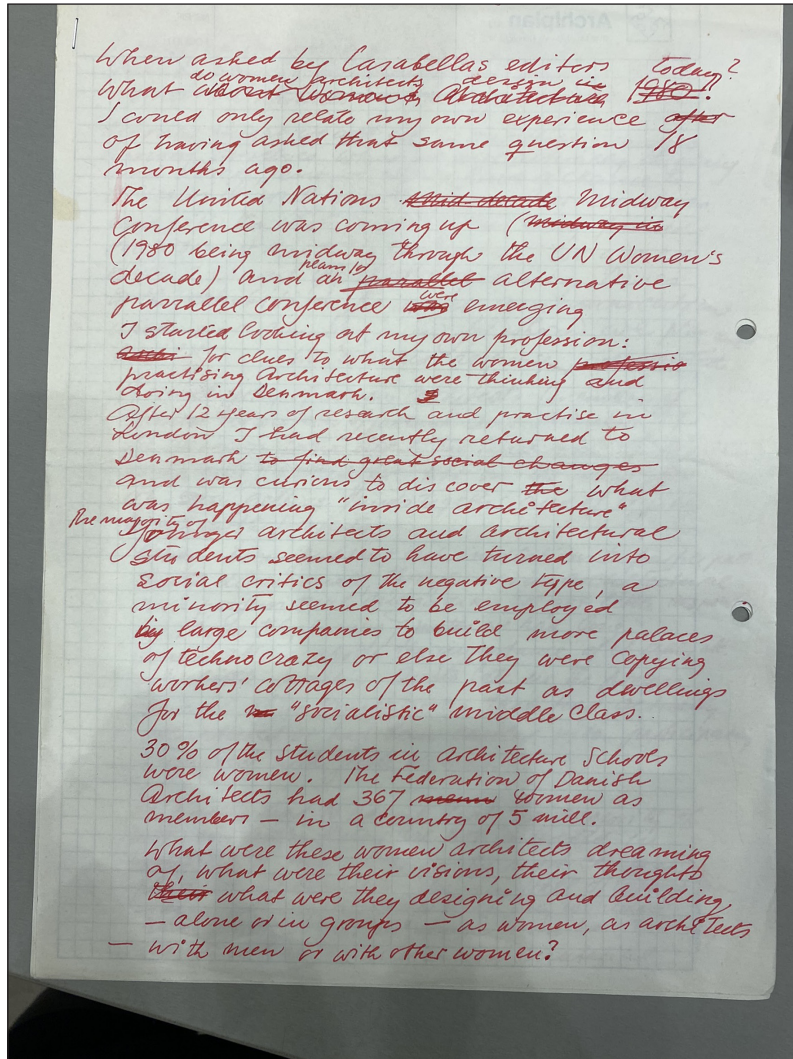 Archiplan
When asked by Casabellas editors today?
What do women architects design in 1980?
I could only relate my own experience after
of having asked that same question 18
months ago.
The United Nations Mid-decade Midway
Conference was coming up (midway in
(1980 being midway through the UN Women's
decade) and an plans for parallel alternative
parralel conference was were emerging
I started looking at my own profession:
archi for clues to what the women professio
practising Architecture were thinking and
doing in Denmark.
After 12 years of research and practise in
London I had recently returned to
Denmark to find great social changes
and was curious to discover the what
was happening "inside architecture"
The majority of
younger architects and architectural
students seemed to have turned into
social critics of the negative type, a
minority seemed to be employed
by large companies to build more palaces
of technocrazy or else they were copying
workers' cottages of the past as dwellings
for the "socialistic" middle class.
30% of the students in Architecture Schools
were women. The Federation of Danish
Architects had 367 women as
members — in a country of 5 mill.
What were these women architects dreaming
of, what were their visions, their thoughts
their what were they designing and building,
— alone or in groups — as women, as architects
— with men or with other women?